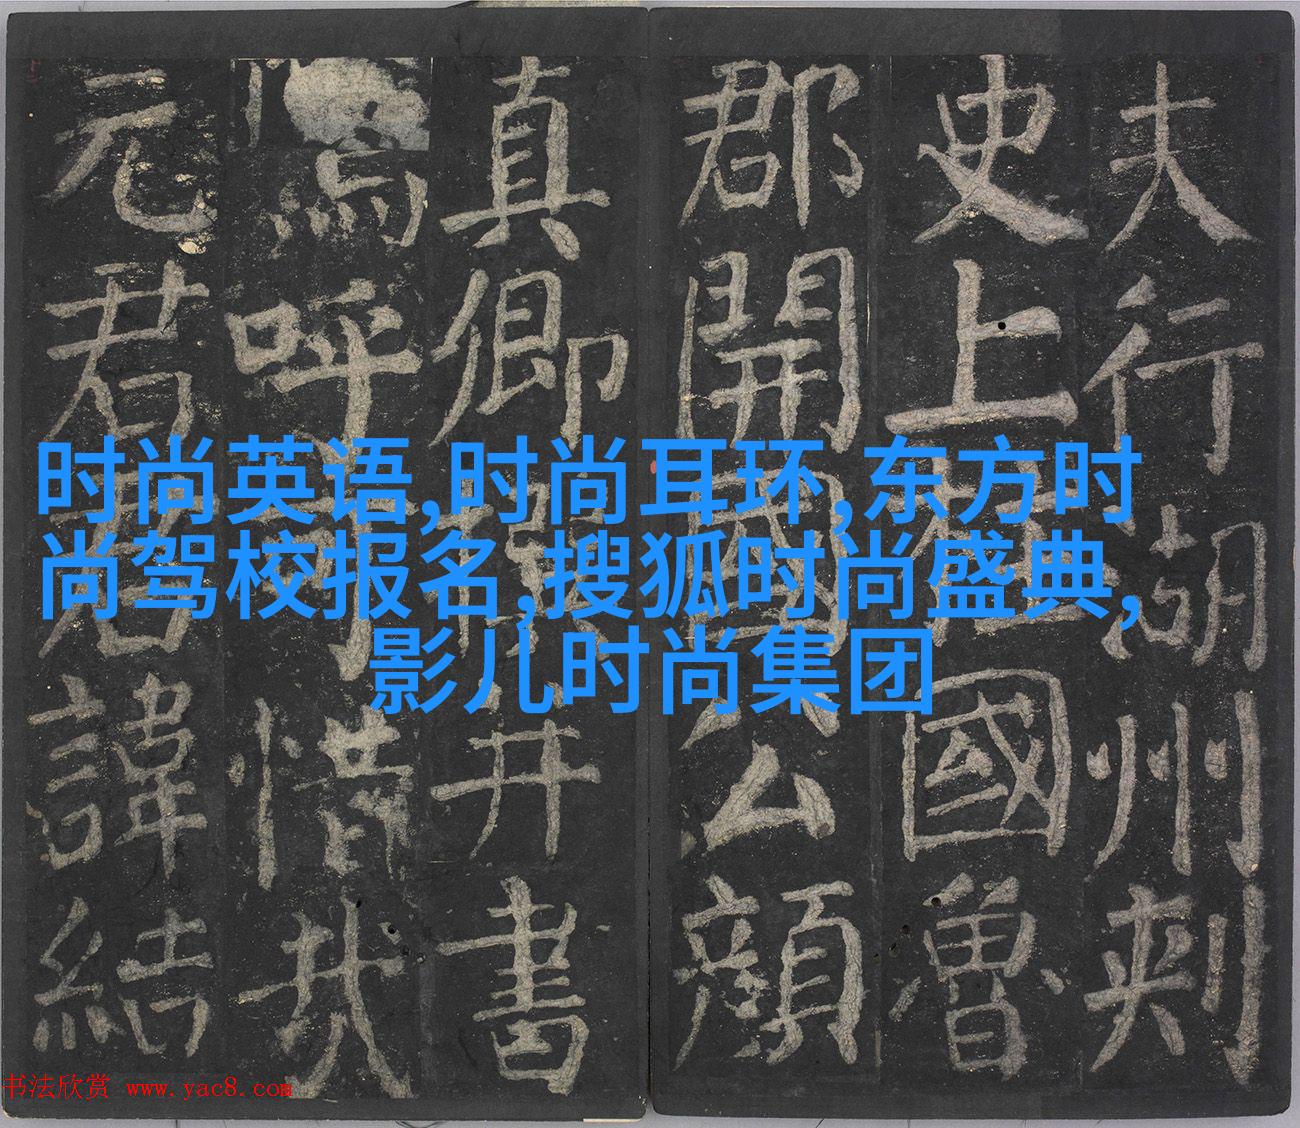 夫行湖州刺
史上柱國魯
郡開國公顏
真卿撰并書
嗚呼可惜哉
元君君諱結
时尚英语,时尚耳环,东方时
尚驾校报名,搜狐时尚盛典,
影儿时尚集团
书法欣赏 www.yac8.com